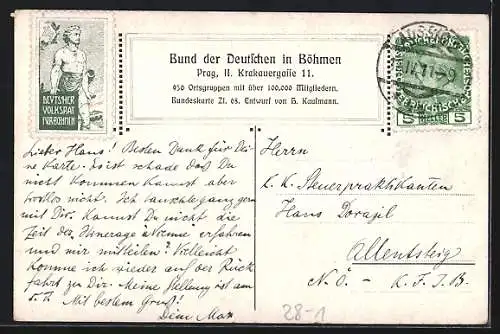 Bund der Deutschen in Böhmen
Prag, II. Krakauergasse 11.
930 Ortsgruppen mit über 100,000 Mitgliedern.
Bundeskarte Zl. 63. Entwurf von H. Kaufmann.
DEUTSCHER
VOLKSRAT
FÜR BÖHMEN
5 HELLER 5
Lieber Hans! Besten Dank für Dei
ne Karte. Es ist schade daß Du
nicht kommen kannst aber
trostlos nicht. Ich tausche ganz gern
mit Dir. Kannst Du nicht die
Zeit des erfahren
und mir mitteilen? Vielleicht
komme ich wieder auf der Rück
fahrt zu Dir. Meine Stellung ist am
Mit bestem Gruß!
Dein Max
Herrn
k. k. Steuerpraktikanten
Hans
Allentsteig
N. Ö. - K. F. J. B.
28-1